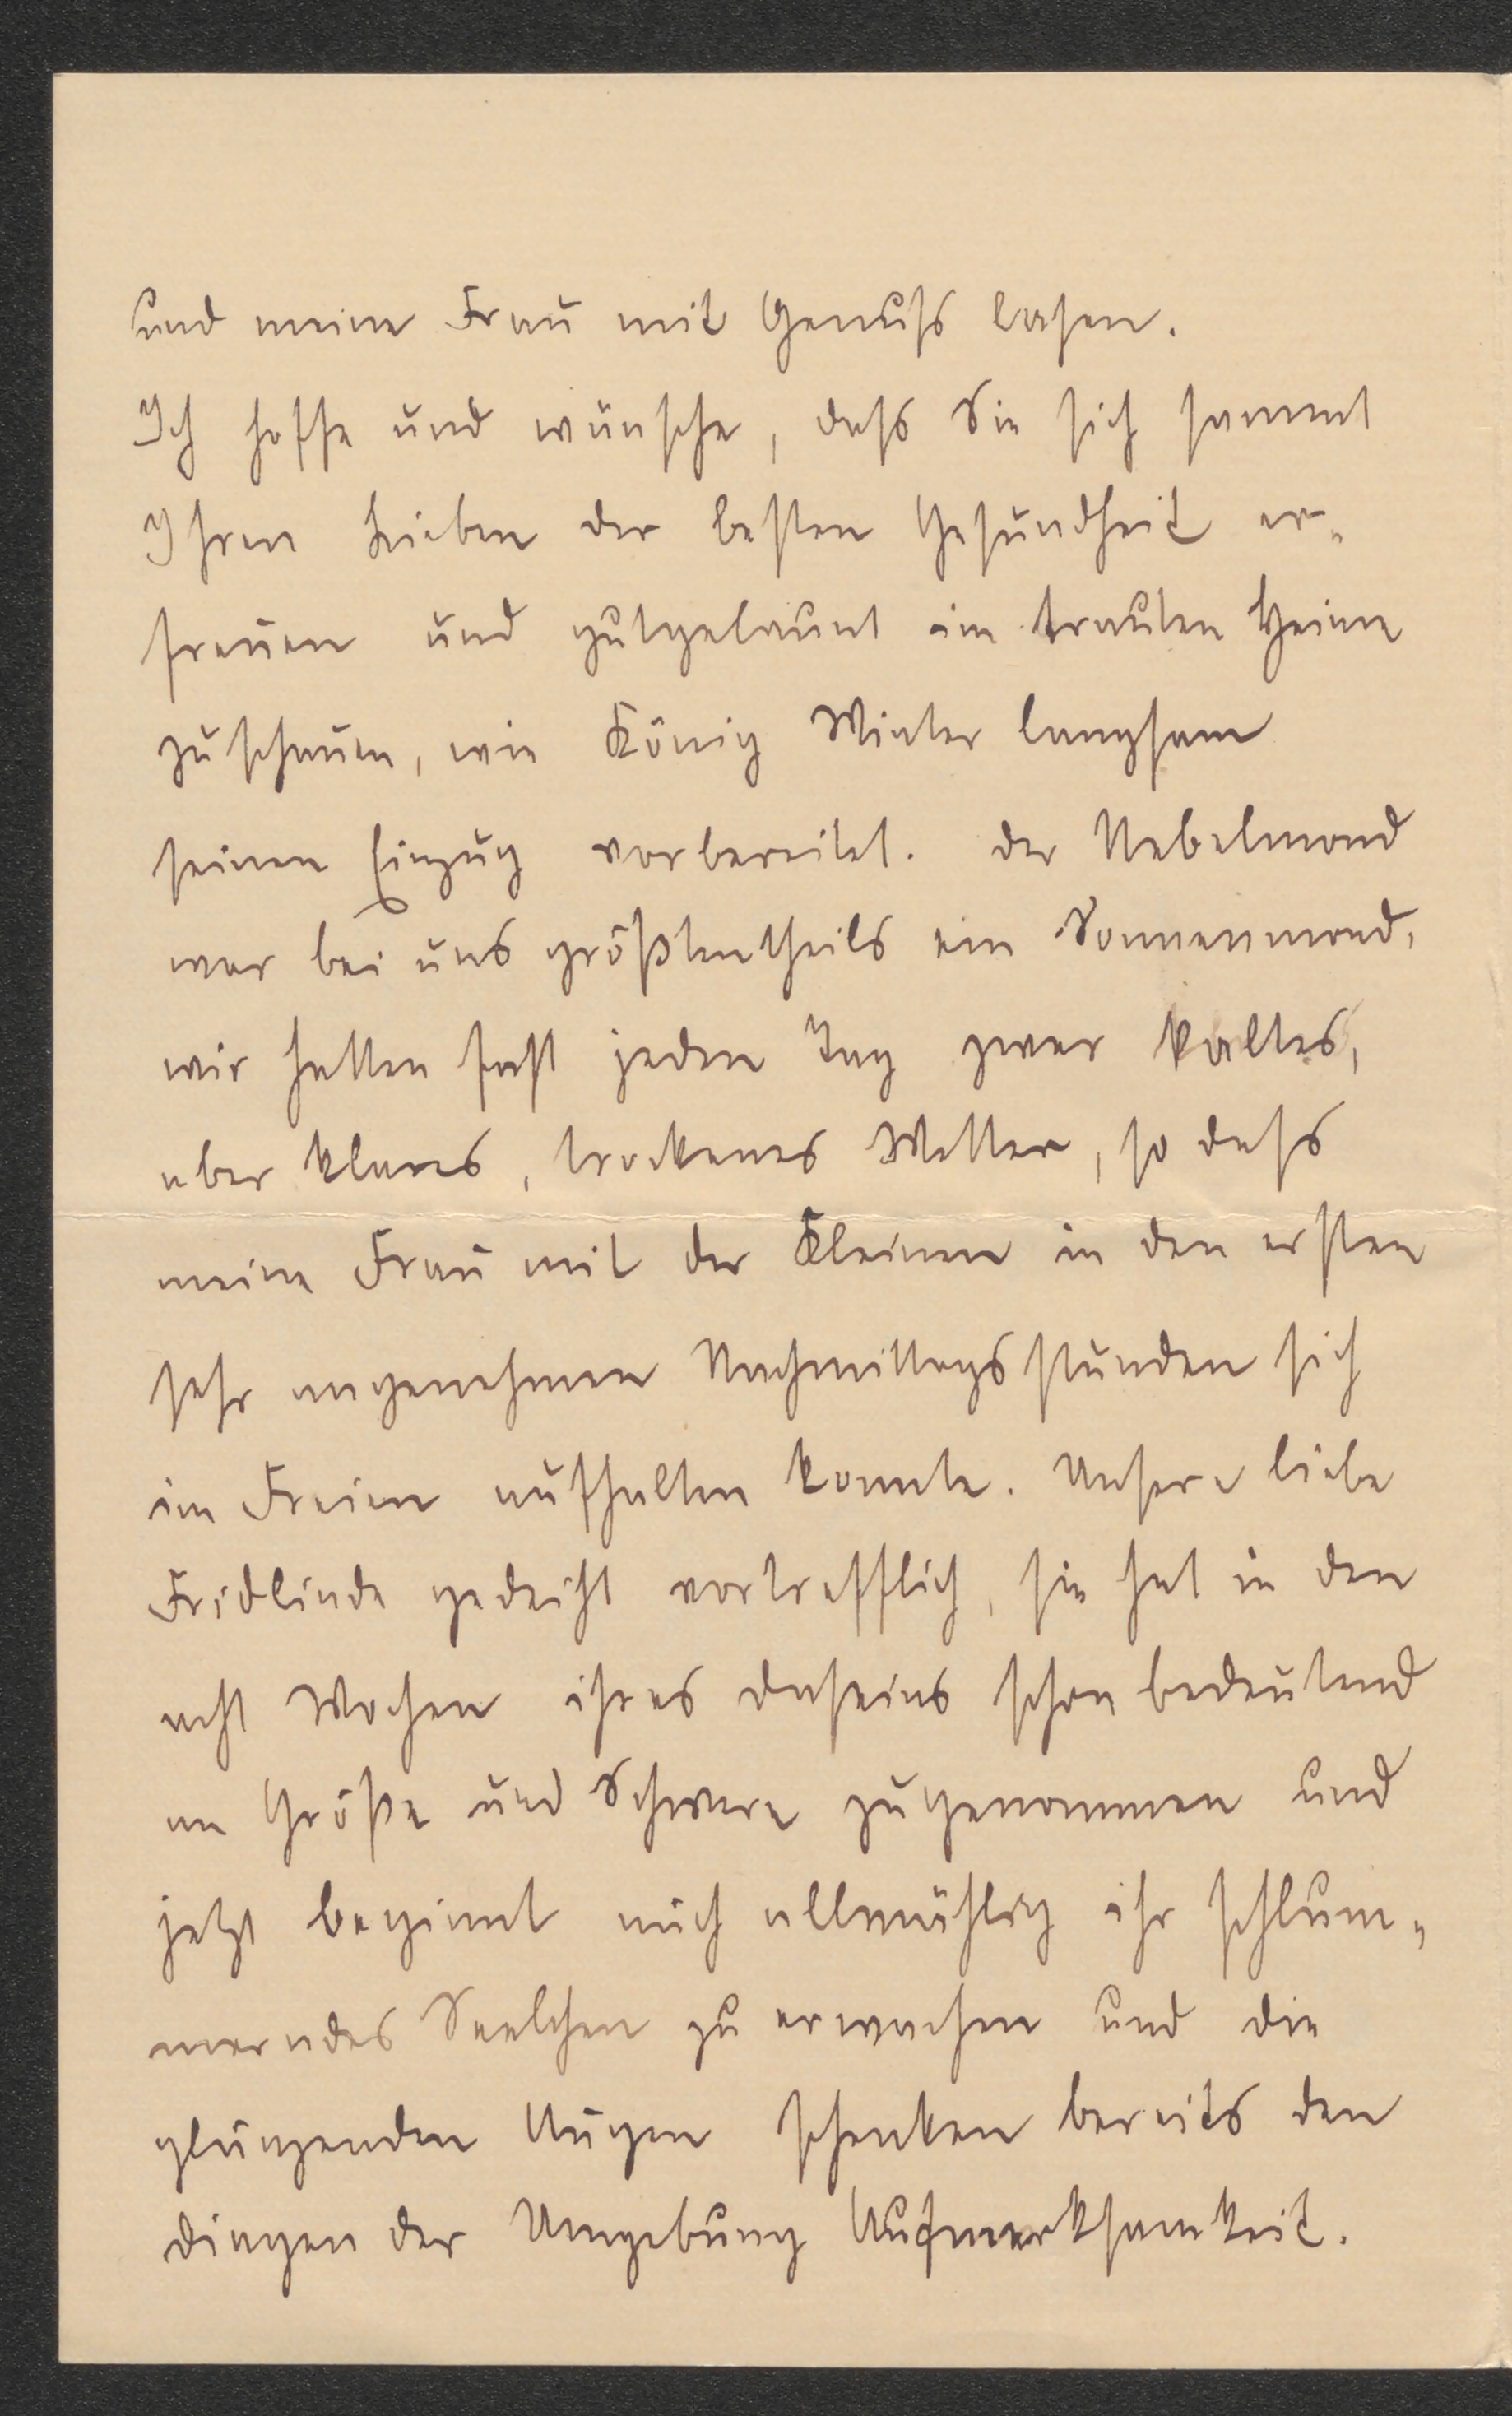 und meine Frau mit Genuss lasen.
Ich hoffe und wünsche, dass Sie sich sammt
Ihren Lieben der besten Gesundheit er-
freuen und gutgelaunt im trauten Heime
zuschauen, wie König Winter langsam
seinen Einzug vorbereitet. Der Nebelmond
war bei uns größtentheils ein Sonnenmond,
wir hatten fast jeden Tag zwar kaltes,
aber klares, trockenes Wetter, so dass
meine Frau mit der Kleinen in den ersten
sehr angenehmen Nachmittagsstunden sich
im Freien aufhalten konnte. Unsere liebe
Fridlinde gedeiht vortrefflich, sie hat in den
acht Wochen ihres Daseins schon bedeutend
an Größe und Schwere zugenommen und
jetzt beginnt auch allmählig ihr schlum-
merndes Seelchen zu erwachen und die
glänzenden Augen schenken bereits den
Dingen der Umgebung Aufmerksamkeit.